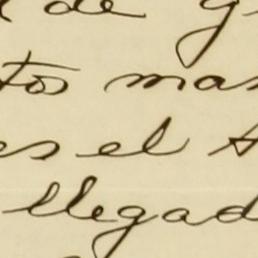 de g
tos mas
es el t
llegad